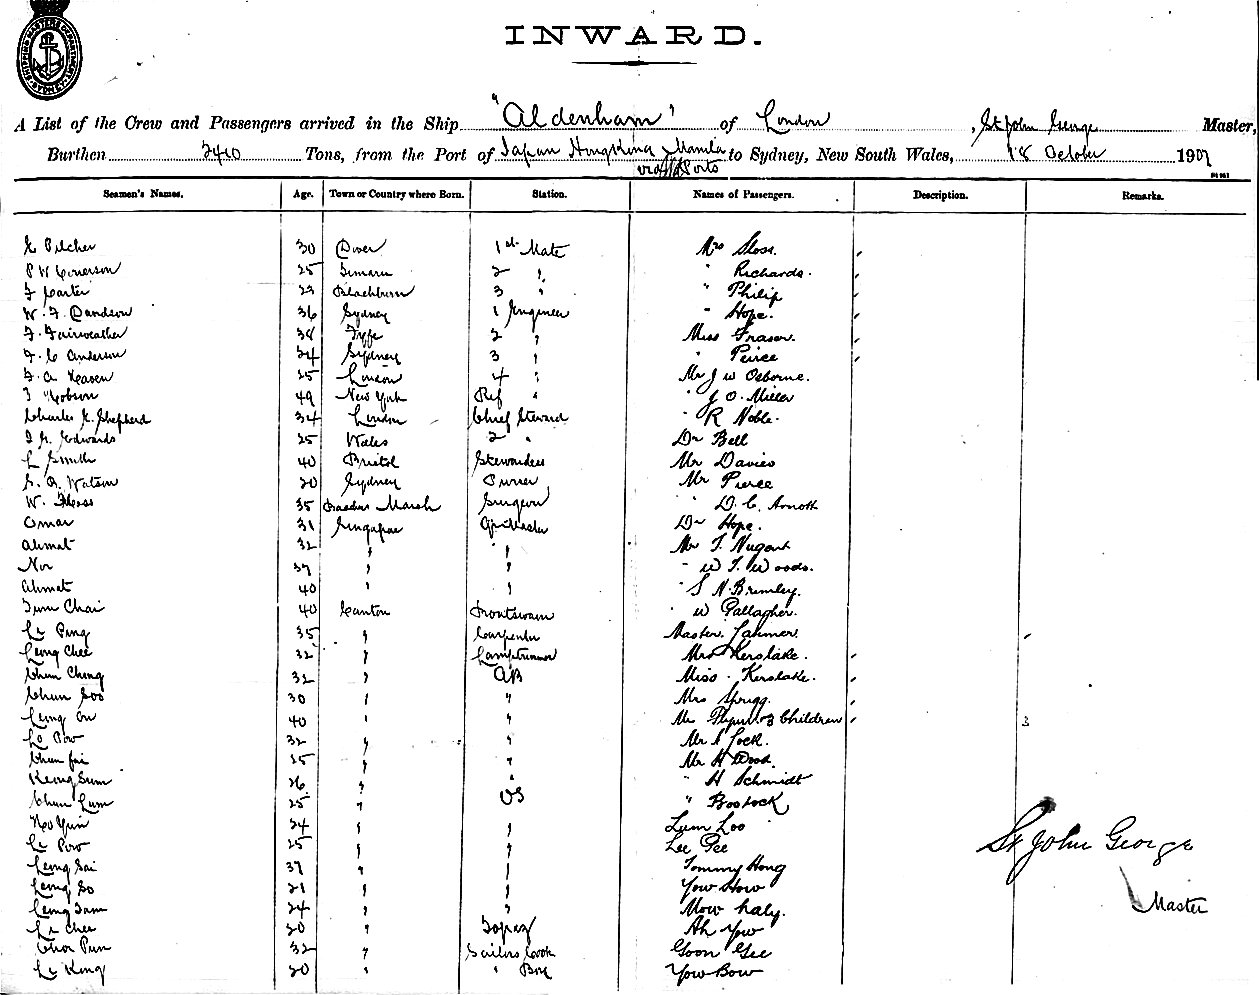 SHIPPING MASTERS DEPARTMENT SYDNEY
INWARD.
A List of the Crew and Passengers arrived in the Ship "Aldenham" of London, St John George Master,
Burthen 2410 Tons, from the Port of Japan Hongkong Manila to Sydney, New South Wales, 18 October 1907
via Ports
Seamen's Names. Age. Town or Country where Born. Station. Names of Passengers. Description. Remarks.
Pilcher 30 Dover 1st Mate Mrs Sloss.
25 Timaru 2 " " Richards.
Carter 23 Blackburn 3 " " Philip
W. F. Davidson 36 Sydney 1 Engineer " Hope.
F. Fairweather 38 Fyffe 2 " Miss Fraser.
F. C Anderson 24 Sydney 3 " " Peirce
25 London 4 " Mr J W Osborne.
Hobson 49 New York Ref " " J O. Miller
Charles K. Shepherd 34 London Chief Steward " R Noble.
Edwards 25 Wales 2 " Dr Bell
L Smith 40 Bristol Stewardess Mr Davies
Watson 20 Sydney Purser Mr Pierce
W. 35 Bacchus Marsh Surgeon " D. C. Arnott
Omar 31 Singapore Dr Hope.
Ahmat 32 " " Mr T. Nugent
Nor 37 " " " W T. Woods.
Ahmat 40 " " " S N. Brimley.
Tum Chai 40 Canton Boatswain " W Gallagher.
Ping 35 " Carpenter Master
Leong Chee 32 " Lamptrimmer Mrs Kerslake.
Chun Ching 32 " AB Miss Kerslake.
Chun Soo 30 " " Mrs Sprigg.
Leong On 40 " " 3 Children 3
Lo Pow 32 " " Mr A Lock.
Chun Jui 25 " " Mr H Wood.
Keong Sum 26 " " " H Schmidt
Chun Lum 25 " OS " Bostock
24 " " Lum Loo
Pow 25 " " Lee Gee
Leong Sai 37 " " Tommy Hong
Leong So 21 " " Yow How
Leong Sam 24 " " Mow
Chee 20 " Topaz Ah Yow
32 " Sailors Cook Goon Gee
King 20 " " Boy Yow Bow
St John George
Master